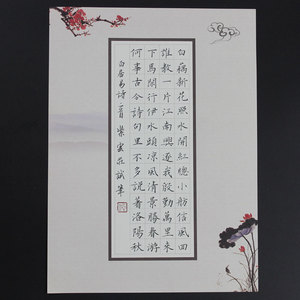 白藕新花照水開紅總小舫信風回
誰教一片江南興逐我殷勤萬里來
下馬閒行伊水頭涼風清景勝春游
何事古今詩句里不多說著洛陽秋
白居易詩二首 紫雲莊試筆